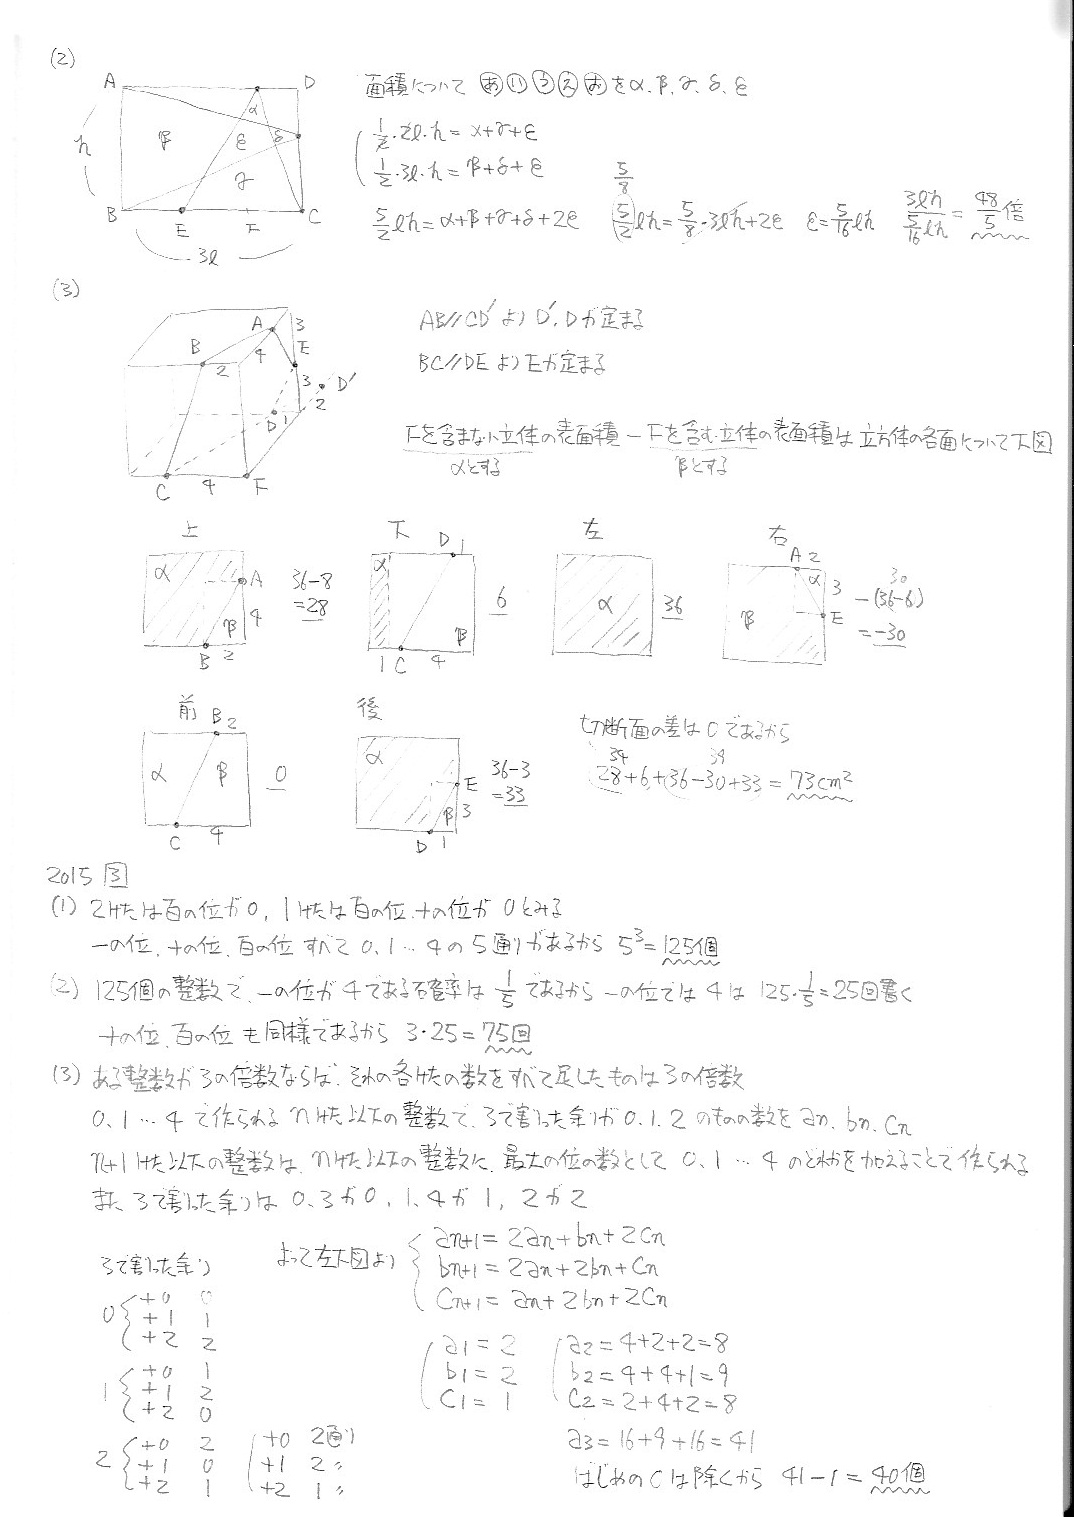 (2)
A D
h β α ε δ γ
B E F C
3l
面積について あいうえおをα、β、γ、δ、ε
1/2・2l・h=α+γ+ε
1/2・3l・h=β+δ+ε
5/2lh=α+β+γ+δ+2ε
5/8
5/2lh=5/8・3lh+2ε ε=5/16lh 3lh/(5/16lh)=48/5倍
(3)
A 3
B 4 E
2 3 D'
D 1 2
C 4 F
AB//CD'よりD'、Dが定まる
BC//DEよりEが定まる
Fを含まない立体の表面積-Fを含む立体の表面積は立方体の各面について下図
αとする βとする
上
α A
β 4
B 2
36-8
=28
下 D 1
α β
1 C 4
6
左
α
36
右 A 2
α 3
β E
30
-(36-6)
=-30
前 B 2
α β
C 4
0
後
α E
β 3
D 1
36-3
=33
切断面の差は0であるから
34 39
28+6+36-30+33=73cm²
2015 3
(1) 2けたは百の位が0, 1けたは百の位、十の位が0とみる
一の位、十の位、百の位すべて0、1…4の5通りがあるから 5³=125個
(2) 125個の整数で、一の位が4である確率は1/5であるから 一の位では4は125・1/5=25回書く
十の位、百の位も同様であるから 3・25=75回
(3) ある整数が3の倍数ならば、それの各けたの数をすべて足したものは3の倍数
0、1…4で作られるnけた以下の整数で、3で割った余りが0、1、2のものの数をan、bn、cn
n+1けた以下の整数は、nけた以下の整数に、最大の位の数として0、1…4のどれかを加えることで作られる
また、3で割った余りは0、3が0、1、4が1, 2が2
3で割った余り
よって左下図より
an+1=2an+bn+2cn
bn+1=2an+2bn+cn
cn+1=an+2bn+2cn
0 +0 0
+1 1
+2 2
1 +0 1
+1 2
+2 0
2 +0 2
+1 0
+2 1
+0 2通り
+1 2〃
+2 1〃
a1=2
b1=2
c1=1
a2=4+2+2=8
b2=4+4+1=9
c2=2+4+2=8
a3=16+9+16=41
はじめの0は除くから 41-1=40個